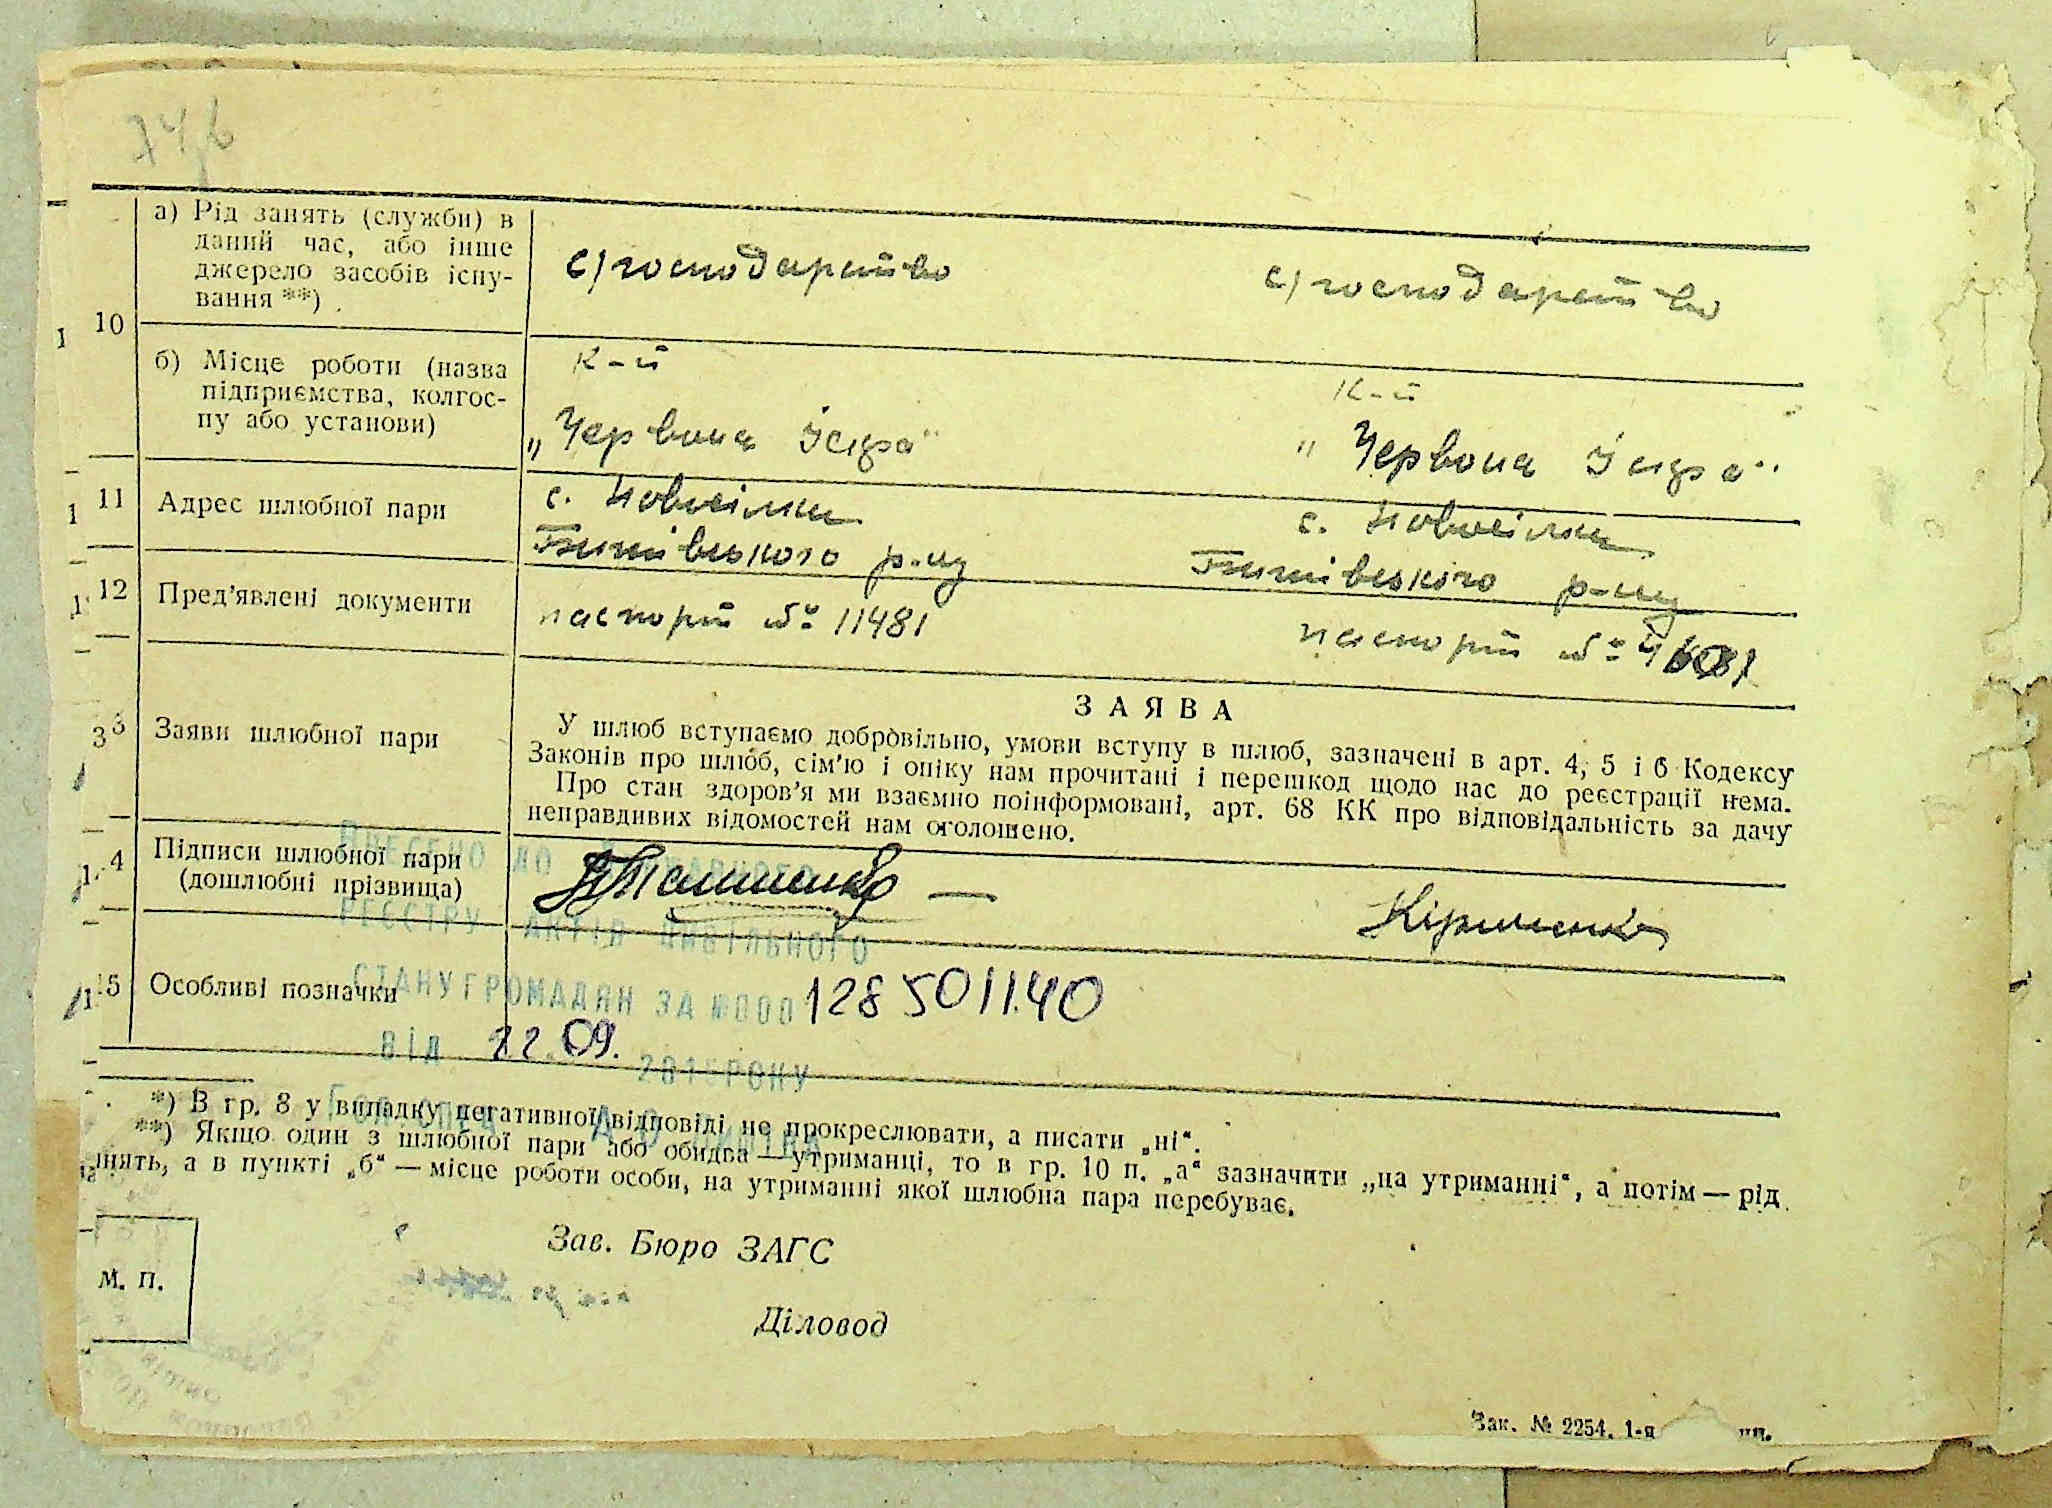 а) Рід занять (служби) в
даний час, або інше
джерело засобів існу-
вання **)
с/господарство
с/господарство
10
б) Місце роботи (назва
підприємства, колгос-
пу або установи)
к-п
„Червона Іскра"
к-п
„Червона Іскра"
11
Адрес шлюбної пари
с. Новосілки
р-ну
с. Новосілки
р-ну
12
Пред’явлені документи
паспорт № 11481
паспорт №
Заяви шлюбної пари
ЗАЯВА
У шлюб вступаємо добровільно, умови вступу в шлюб, зазначені в арт. 4, 5 і 6 Кодексу
Законів про шлюб, сім’ю і опіку нам прочитані і перешкод щодо нас до реєстрації нема.
Про стан здоров’я ми взаємно поінформовані, арт. 68 КК про відповідальність за дачу
неправдивих відомостей нам оголошено.
14
Підписи шлюбної пари
(дошлюбні прізвища)
Кириченко
15
Особливі позначки
ВНЕСЕНО ДО ДЕРЖАВНОГО
РЕЄСТРУ АКТІВ ЦИВІЛЬНОГО
СТАНУ ГРОМАДЯН ЗА №000 128501140
ВІД 22.09. РОКУ
*) В гр. 8 у випадку негативної відповіді не прокреслювати, а писати „ні“.
**) Якщо один з шлюбної пари або обидва — утриманці, то в гр. 10 п. „а“ зазначити „на утриманні“, а потім — рід
занять, а в пункті „б“ — місце роботи особи, на утриманні якої шлюбна пара перебуває.
М. П.
Зав. Бюро ЗАГС
Діловод
Зак. № 2254. 1-я